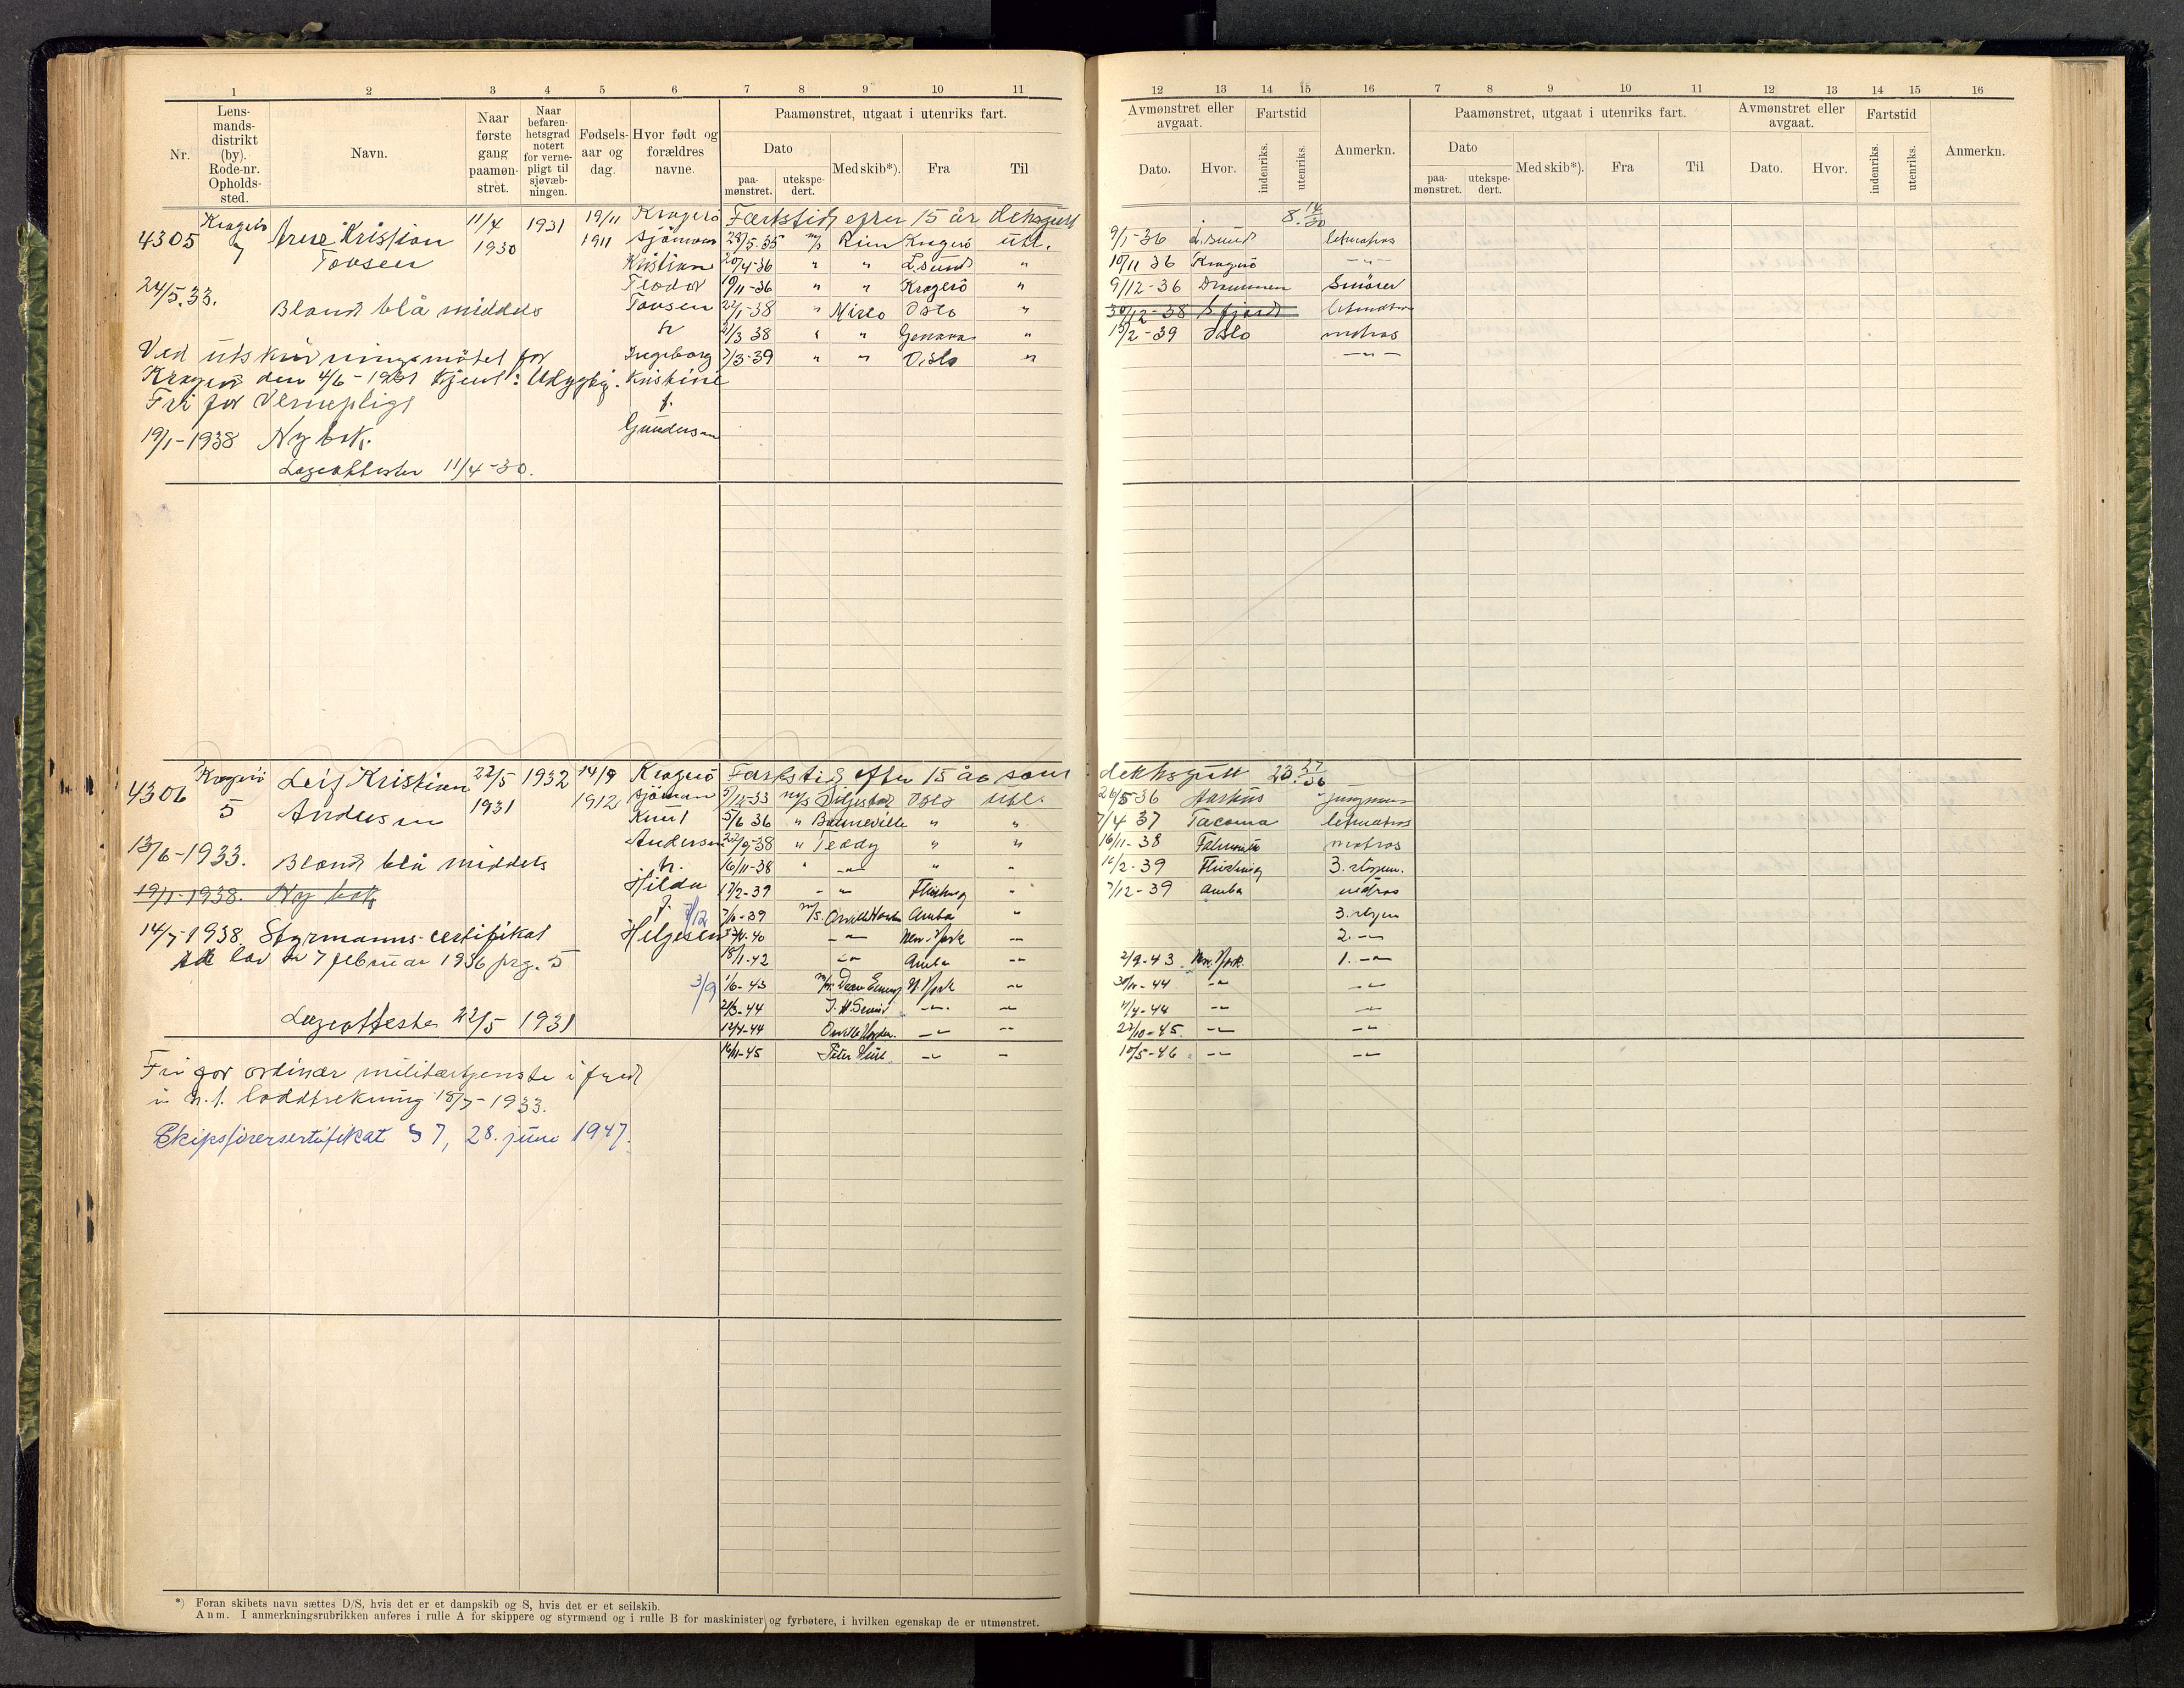 1 2 3 4 5 6 7 8 9 10 11
Nr.
Lensmandsdistrikt (by). Rode-nr. Opholdssted.
Navn.
Naar første gang paamønstret.
Naar befarenhetsgrad notert for vernepligt til sjøvæbningen.
Fødselsaar og dag.
Hvor født og forældres navne.
Paamønstret, utgaat i utenriks fart.
Dato
paamønstret. utekspedert.
Med skib*). Fra Til
12 13 14 15 16 7 8 9 10 11 12 13 14 15 16
Avmønstret eller avgaat. Fartstid
Dato. Hvor. indenriks. utenriks. Anmerkn.
Paamønstret, utgaat i utenriks fart.
Dato
paamønstret. utekspedert.
Med skib*). Fra Til
Avmønstret eller avgaat. Fartstid
Dato. Hvor. indenriks. utenriks. Anmerkn.
4305 Kragerø 7 Kristian 11/4 1930 1931 19/11 1911 Kragerø
24/5.33. Blond blå middels
sjömann Kristian Teodor
h Ingeborg Kristine f. Gundersen
Ved utskrivningsmötet for
Kragerö den 4/6-1931 kjent: Udygtig.
Fri for Vernepligt
19/1-1938 Ny bok.
Lægeattester 11/4-30.
Fartstid efter 15 år dekksgutt 8. 14/30
28/5.35 m/s Kragerö utl. 9/1-36 L.sund letmatros
20/4-36 " " L.sund " 10/11 36 Kragerö -"-
19/11-36 " " Kragerö " 9/12-36 Drammen Smörer
22/1-38 " Oslo " 30/12-38 letmatros
21/3 38 " " " 15/2-39 Oslo matros
7/3-39 " " Oslo " -"-
4306 Kragerö 5 Leif Kristian Andersen 22/5 1931 1932 14/9 1912 Kragerö
sjömann Knut Andersen h. Hilda f. Helgesen
13/6-1933. Blond blå middels
19/1-1938. Ny bok
14/7-1938. Styrmanns-certifikat
lov av 7 februar 1936 prg. 5
Lægeattester 22/5 1931
Fri for ordinær militærtjenste i fred
i h.t. loddtrekning 18/7-1933.
Skipsførersertifikat § 7, 28. juni 1947.
Fartstid efter 15 år som dekksgutt 23. 27/30
5/12-33 m/s Siljestad Oslo utl. 26/5-36 Aarhus jungmann
5/6 36 " Bonneville " " 7/4 37 Tacoma letmatros
22/9-38 " Teddy " " 16/11-38 Falmouth matros
16/11-38 " -"- " 16/2-39 Flushing 3. styrm.
17/2-39 -"- Flushing " 7/12-39 Aruba matros
7/12 m/s. Orville Harden Aruba " 3. styrm
-"- New-York -"- 2. -"-
18/1-42 -"- Aruba -"- 2/9-43 New.York. 1. -"-
3/9 1/6-43 N. York -"- -44 -"- -"-
21/3-44 -"- -"- -44 -"- -"-
12/4-44 Orville Harden. -"- -"- 22/10-45. -"- -"-
16/11-45 Peter -"- - 10/5-46 -"- -"-
*) Foran skibets navn sættes D/S, hvis det er et dampskib og S, hvis det er et seilskib.
Anm. I anmerkningsrubrikken anføres i rulle A for skippere og styrmænd og i rulle B for maskinister og fyrbøtere, i hvilken egenskap de er utmønstret.